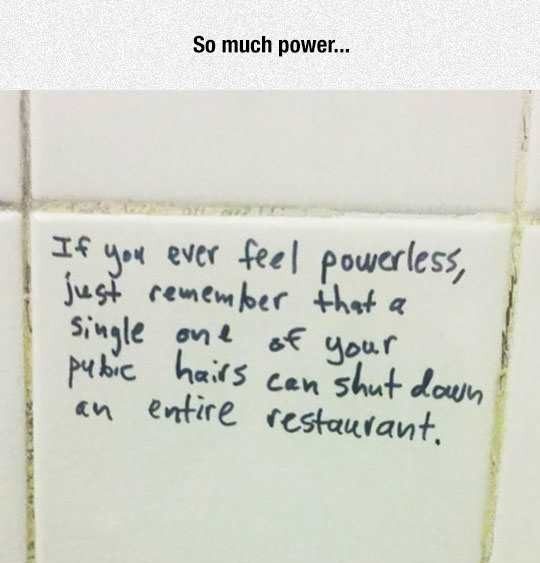 So much power...
If you ever feel powerless,
just remember that a
single one of your
pubic hairs can shut down
an entire restaurant.